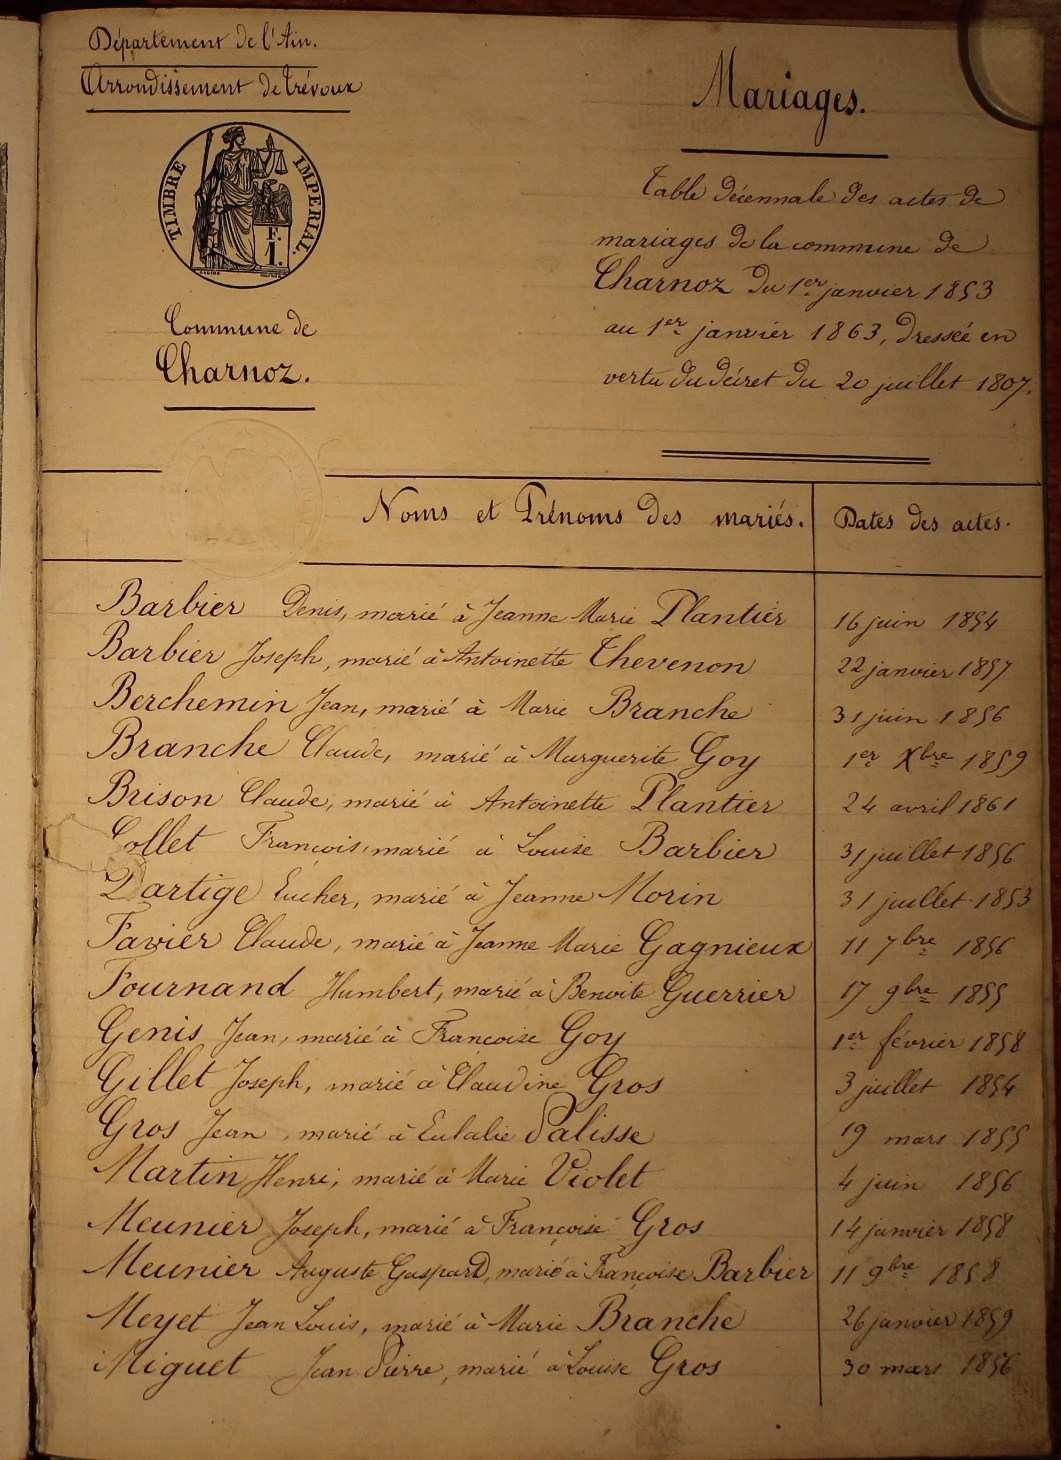 Département de l'Ain.
Arrondissement de Trévoux
TIMBRE IMPERIAL.
F.
1.
Commune de
Charnoz.
Mariages.
Table décennale des actes de
mariages de la commune de
Charnoz du 1er janvier 1853
au 1er janvier 1863, dressée en
vertu du décret du 20 juillet 1807.
Noms et Prénoms des mariés. Dates des actes.
Barbier Denis, marié à Jeanne Marie Plantier 16 juin 1854
Barbier Joseph, marié à Antoinette Thevenon 22 janvier 1857
Berchemin Jean, marié à Marie Branche 31 juin 1856
Branche Claude, marié à Marguerite Goy 1er Xbre 1859
Brison Claude, marié à Antoinette Plantier 24 avril 1861
Collet François, marié à Louise Barbier 31 juillet 1856
Dartige Eucher, marié à Jeanne Morin 31 juillet 1853
Favier Claude, marié à Jeanne Marie Gagnieux 11 7bre 1856
Fournand Humbert, marié à Benoite Guerrier 17 9bre 1855
Genis Jean, marié à Françoise Goy 1er février 1858
Gillet Joseph, marié à Claudine Gros 3 juillet 1854
Gros Jean, marié à Eulalie Palisse 19 mars 1855
Martin Henri, marié à Marie Violet 4 juin 1856
Meunier Joseph, marié à Françoise Gros 14 janvier 1858
Meunier Auguste Gaspard, marié à Françoise Barbier 11 9bre 1858
Meyet Jean Louis, marié à Marie Branche 26 janvier 1859
Miguet Jean Pierre, marié à Louise Gros 30 mars 1856